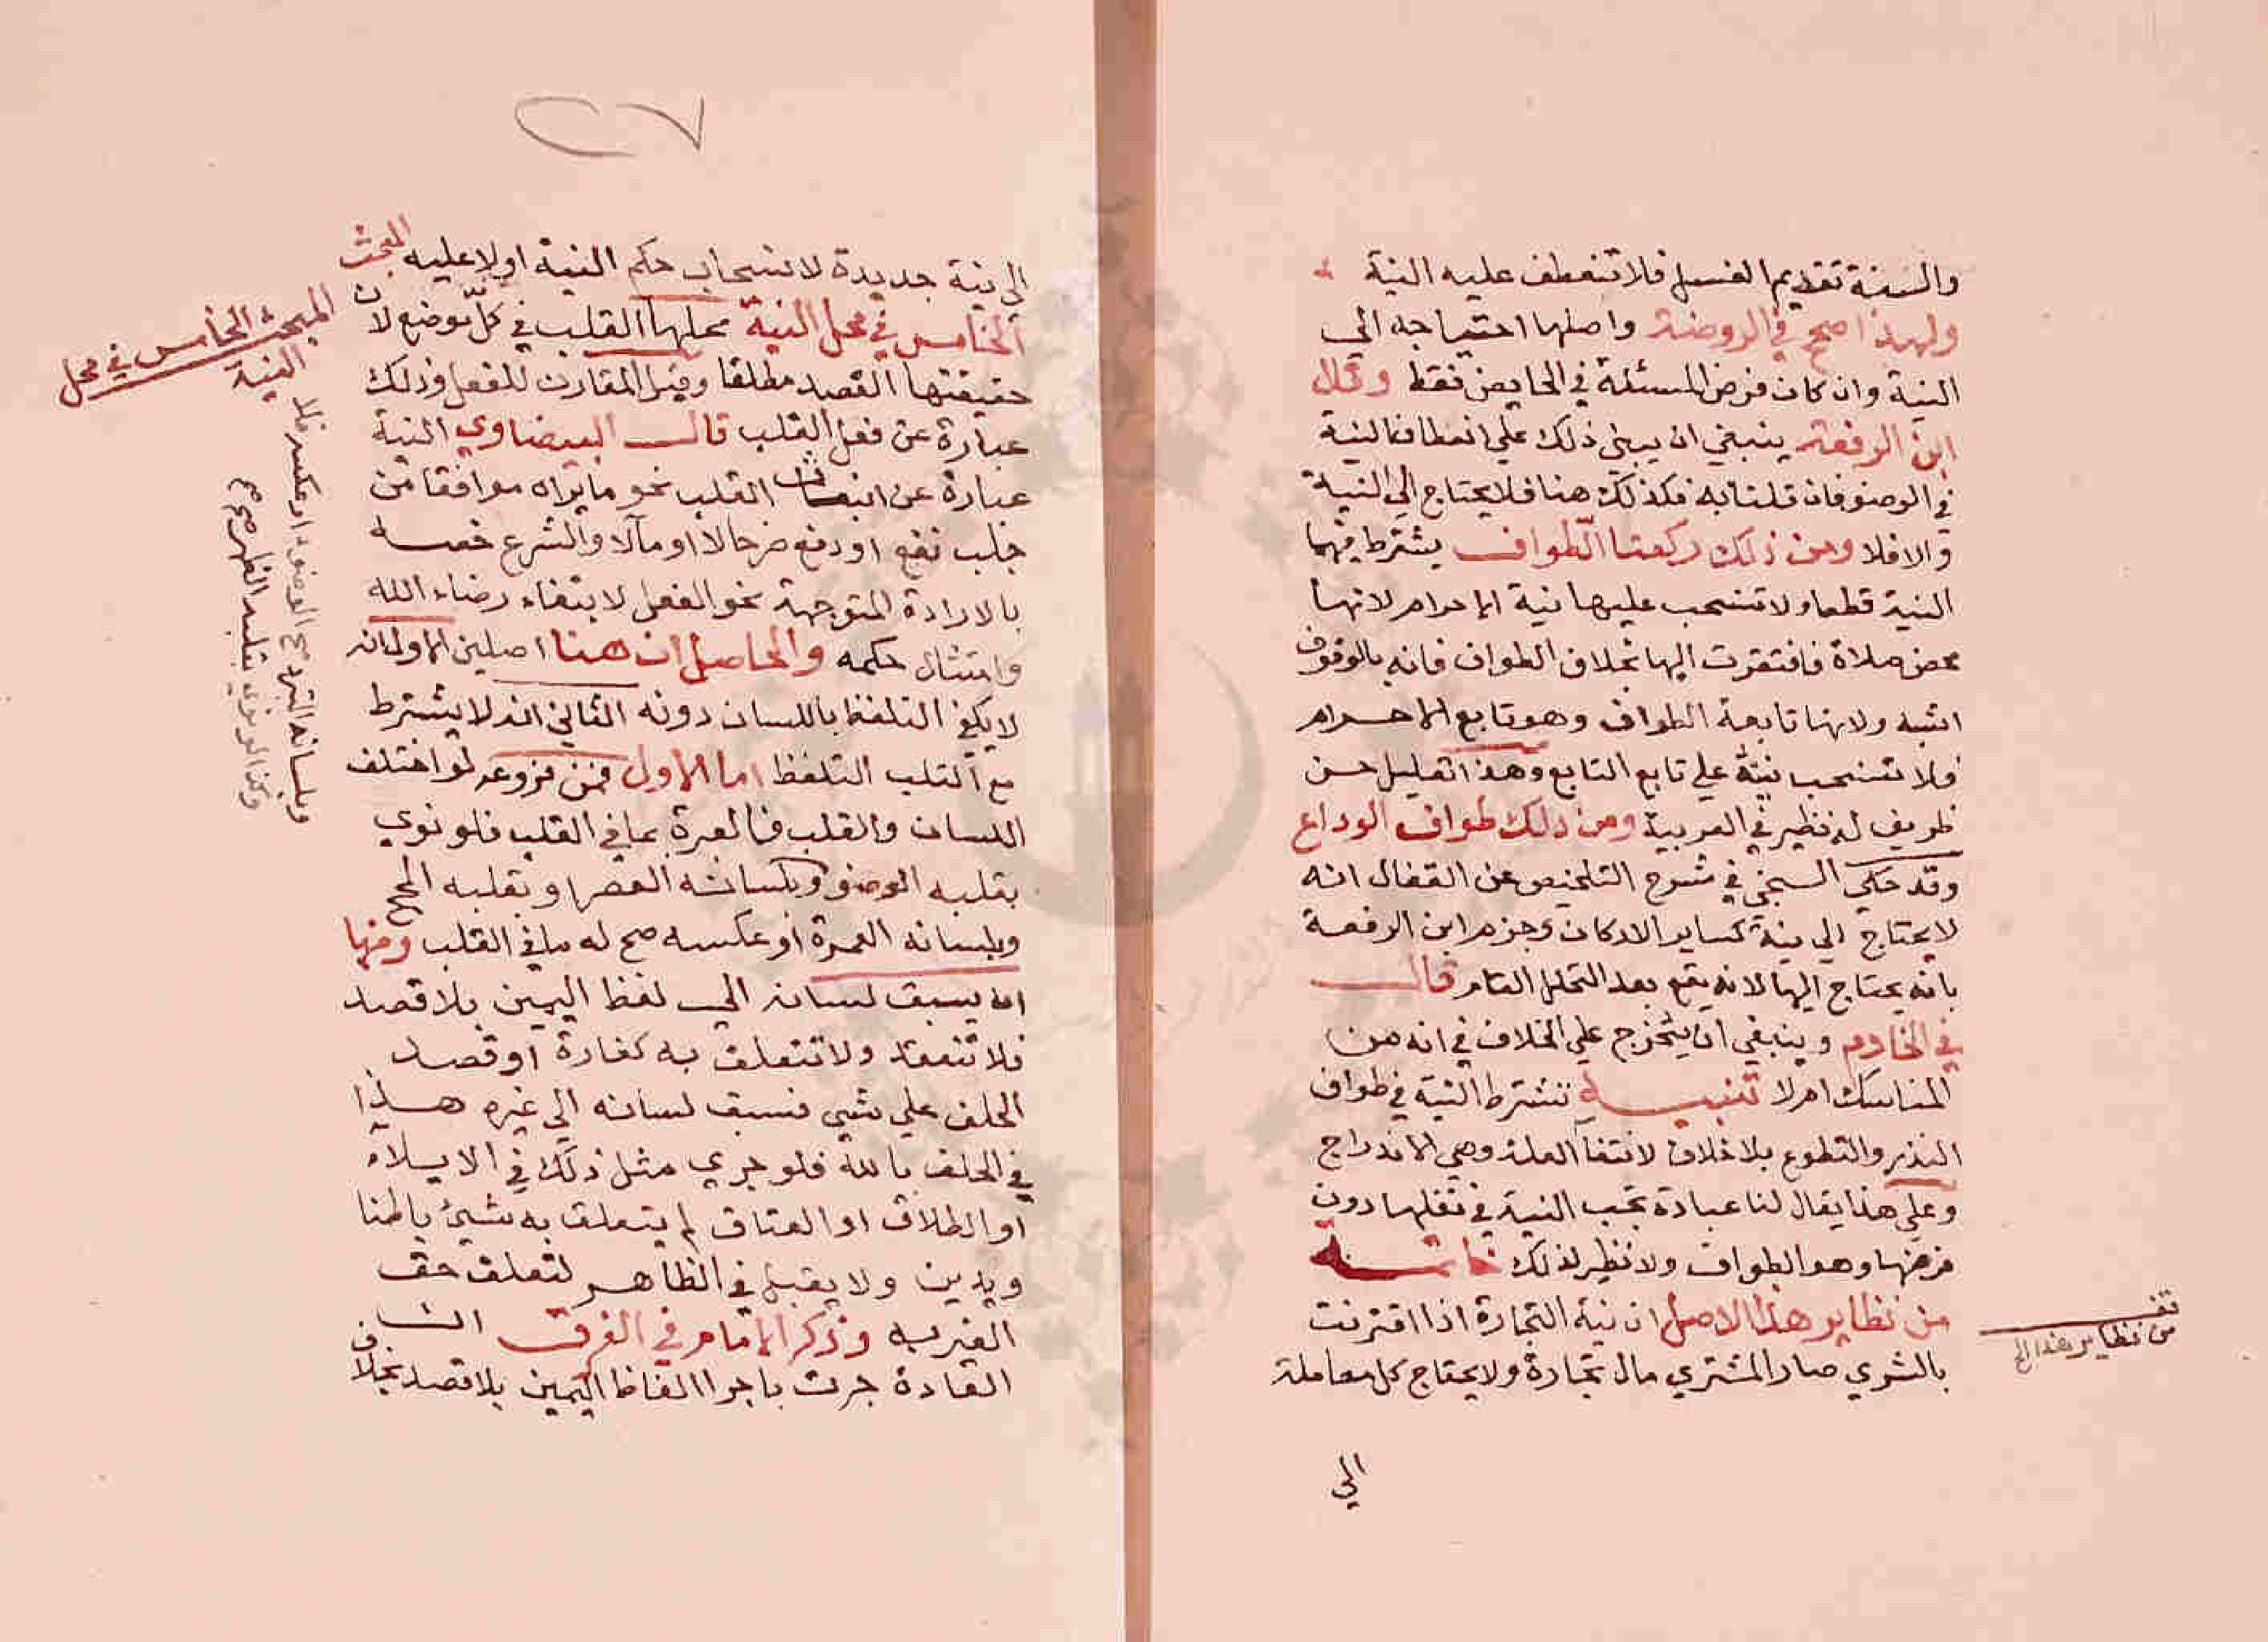 والسنة تقديم الغسل فلا تنعطف عليه النية
ولهذا صحح في الروضة واصلها احتياجه الى
النية وان كان فرض المسئلة في الحايض فقط وقال
ابن الرفعة ينبغي ان يبنى ذلك على انعطاف النية
في الوضو فان قلنا به فكذلك هنا فلا يحتاج الي النية
والا فلا ومن ذلك ركعتا الطواف يشترط فيهما
النية قطعا ولا تنسحب عليها نية الاحرام لانها
محض صلاة فافتقرت اليها بخلاف الطواف فانه بالوقوف
اشبه ولانها تابعة الطواف وهو تابع الاحرام
فلا تنسحب نيته علي تابع التابع وهذا تعليل حسن
ظريف له نظير في العربية ومن ذلك طواف الوداع
وقد حكي السبخي في شرح التلخيص عن القفال انه
لا يحتاج الي نية كساير الاركان وجزم ابن الرفعة
بانه يحتاج اليها لانه يقع بعد التحلل التام قال
في الخادم وينبغي ان يتخرج علي الخلاف في انه من
المناسك ام لا تنبيه تشترط النية في طواف
النذر والتطوع بلا خلاف لانتفآ العلة وهي الاندراج
وعلي هذا يقال لنا عبادة تجب النية في نفلها دون
فرضها وهو الطواف ولا نظير لذلك خاتمة
من نظاير هذا الاصل ان نية التجارة اذا اقترنت
بالشري صار المشتري مال تجارة ولا يحتاج كل معاملة
الي
من نظاير هذا الخ
الي نية جديدة لانسحاب حكم النية اولا عليه المبحث
الخامس في محل النية محلها القلب في كل موضع لان
حقيقتها القصد مطلقا وقيل المقارن للفعل وذلك
عبارة عن فعل القلب قال البيضاوي النية
عبارة عن انبعاث القلب نحو ما يراه موافقا من
جلب نفع او دفع ضر حالا او مآلا والشرع خصه
بالارادة المتوجهة نحو الفعل لابتغاء رضاء الله
وامتثال حكمه والحاصل ان هنا اصلين الاول انه
لا يكفي التلفظ باللسان دونه الثاني انه لا يشترط
مع القلب التلفظ اما الاول فمن فروعه لو اختلف
اللسان والقلب فالعبرة بما في القلب فلو نوي
بقلبه الوضو وبلسانه العصر او بقلبه الحج
وبلسانه العمرة او عكسه صح له ما في القلب ومنها
ان يسبق لسانه الي لفظ اليمين بلا قصد
فلا تنعقد ولا تتعلق به كفارة او قصد
الحلف علي شي فسبق لسانه الي غيره هذا
في الحلف بالله فلو جري مثل ذلك في الايلاء
او الطلاق او العتاق لم يتعلق به شيئ باطنا
ويدين ولا يقبل في الظاهر لتعلق حق
الغير به وذكر الامام في الفرق ان
العادة جرت باجرا الفاظ اليمين بلا قصد بخلاف
المبحث الخامس في محل
النية
وبلسانه التبرد صح الوضوء او عكسه فلا
وكذا لو نوي بقلبه الظهر صح